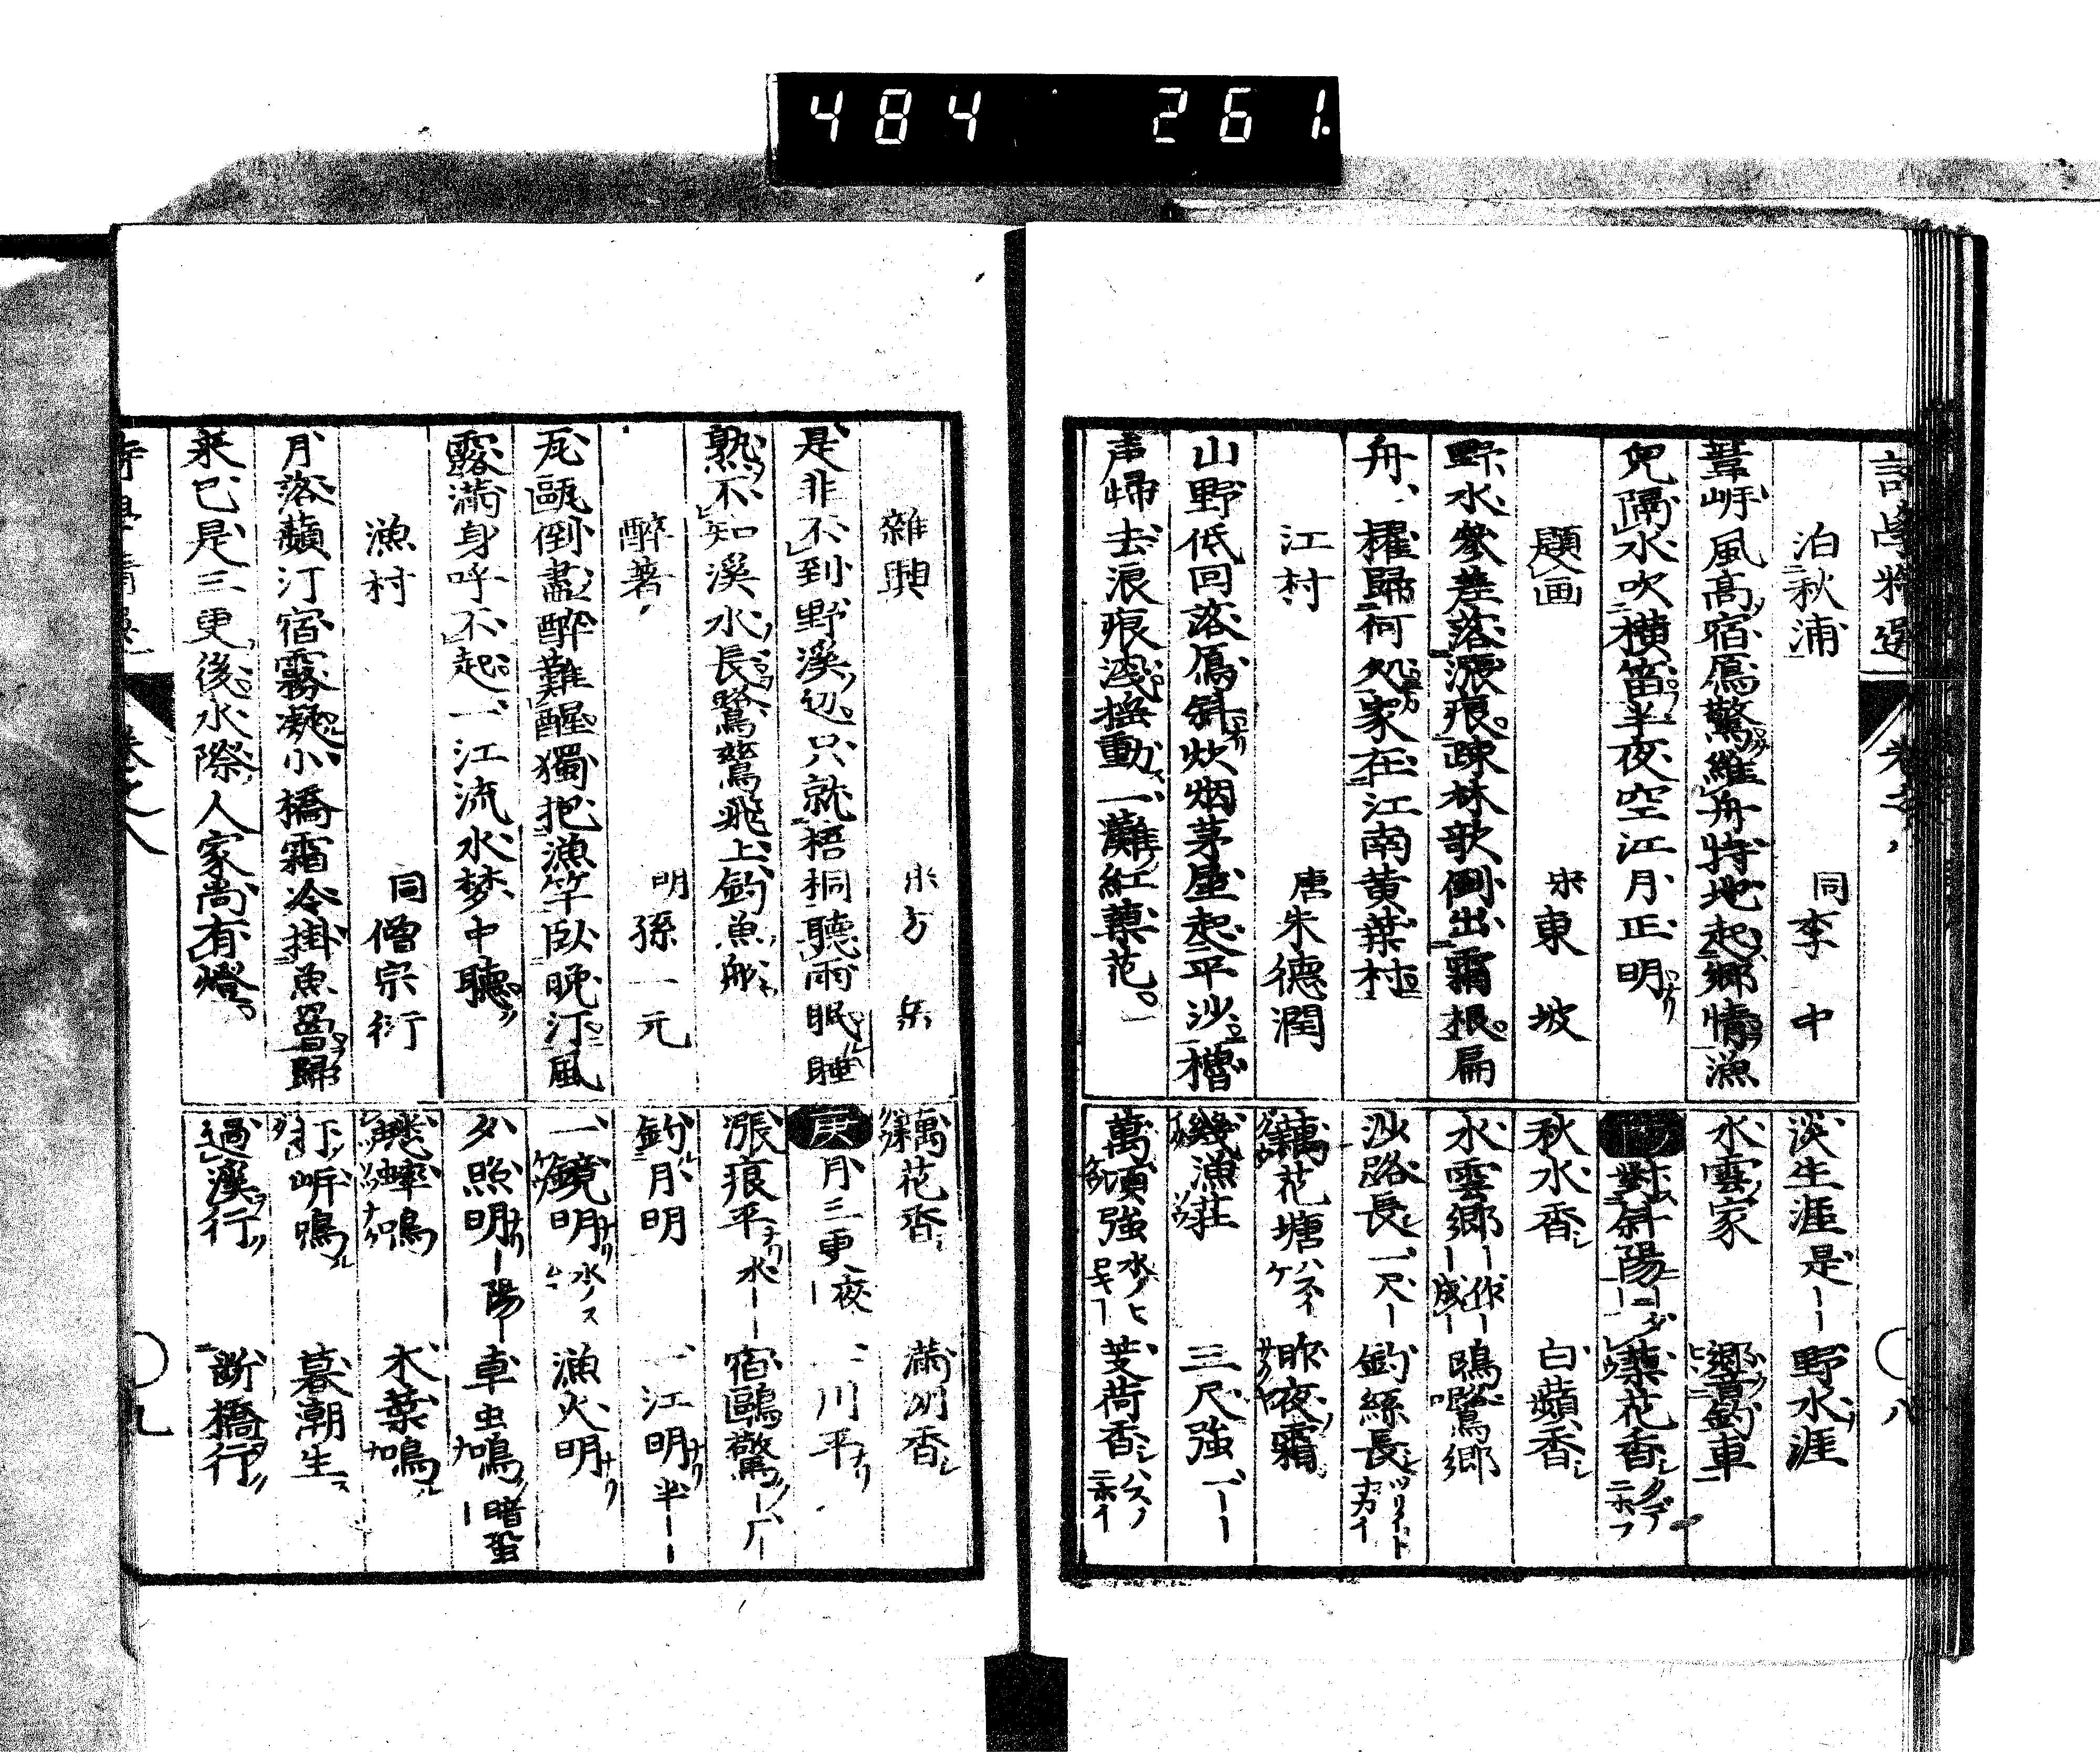 484 261
泊秋浦 同李中
葦岸風高宿鴈驚維舟特地起郷情漁
児隔水吹横笛半夜空江月正明
題画 宋東坡
野水參差落漲痕疎林欹倒出霜根扁
舟一櫂歸何処家在江南黄葉村
江村 唐朱德潤
山野低回落鴈斜炊烟茅屋起平沙櫓
声帰去浪痕淺揺動一灘紅蓼花
淡生涯 是一 野水涯
水雲家 響釣車
對斜陽 蘂花香
秋水香 白蘋香
水雲郷 一作一 成一 鴎鷺郷
沙路長 一尺一 釣絲長
藕花塘 昨夜霜
幾漁荘 三尺強
萬頃強 芰荷香
八
雜興 方岳
是非不到野溪辺只就梧桐聽雨眠睡
熟不知溪水長鷺鷥飛上釣魚船
醉著 明孫一元
瓦甌倒盡醉難醒獨把漁竿臥晚汀風
露滿身呼不起一江流水梦中聽
漁村 同僧宗衍
月落蘋汀宿霧凝小橋霜冷掛魚罾歸
来已是三更後水際人家尚有燈
藕花香 滿洲香
庚 月三更 夜一 一川平
漲痕平 水一 宿鷗驚
釣月明 一江明 半一
一鏡明 漁火明
夕照明 陽一 草虫鳴 暗蛩一
蟋蟀鳴 木葉鳴
打岸鳴 暮潮生
過溪行 断橋行
九